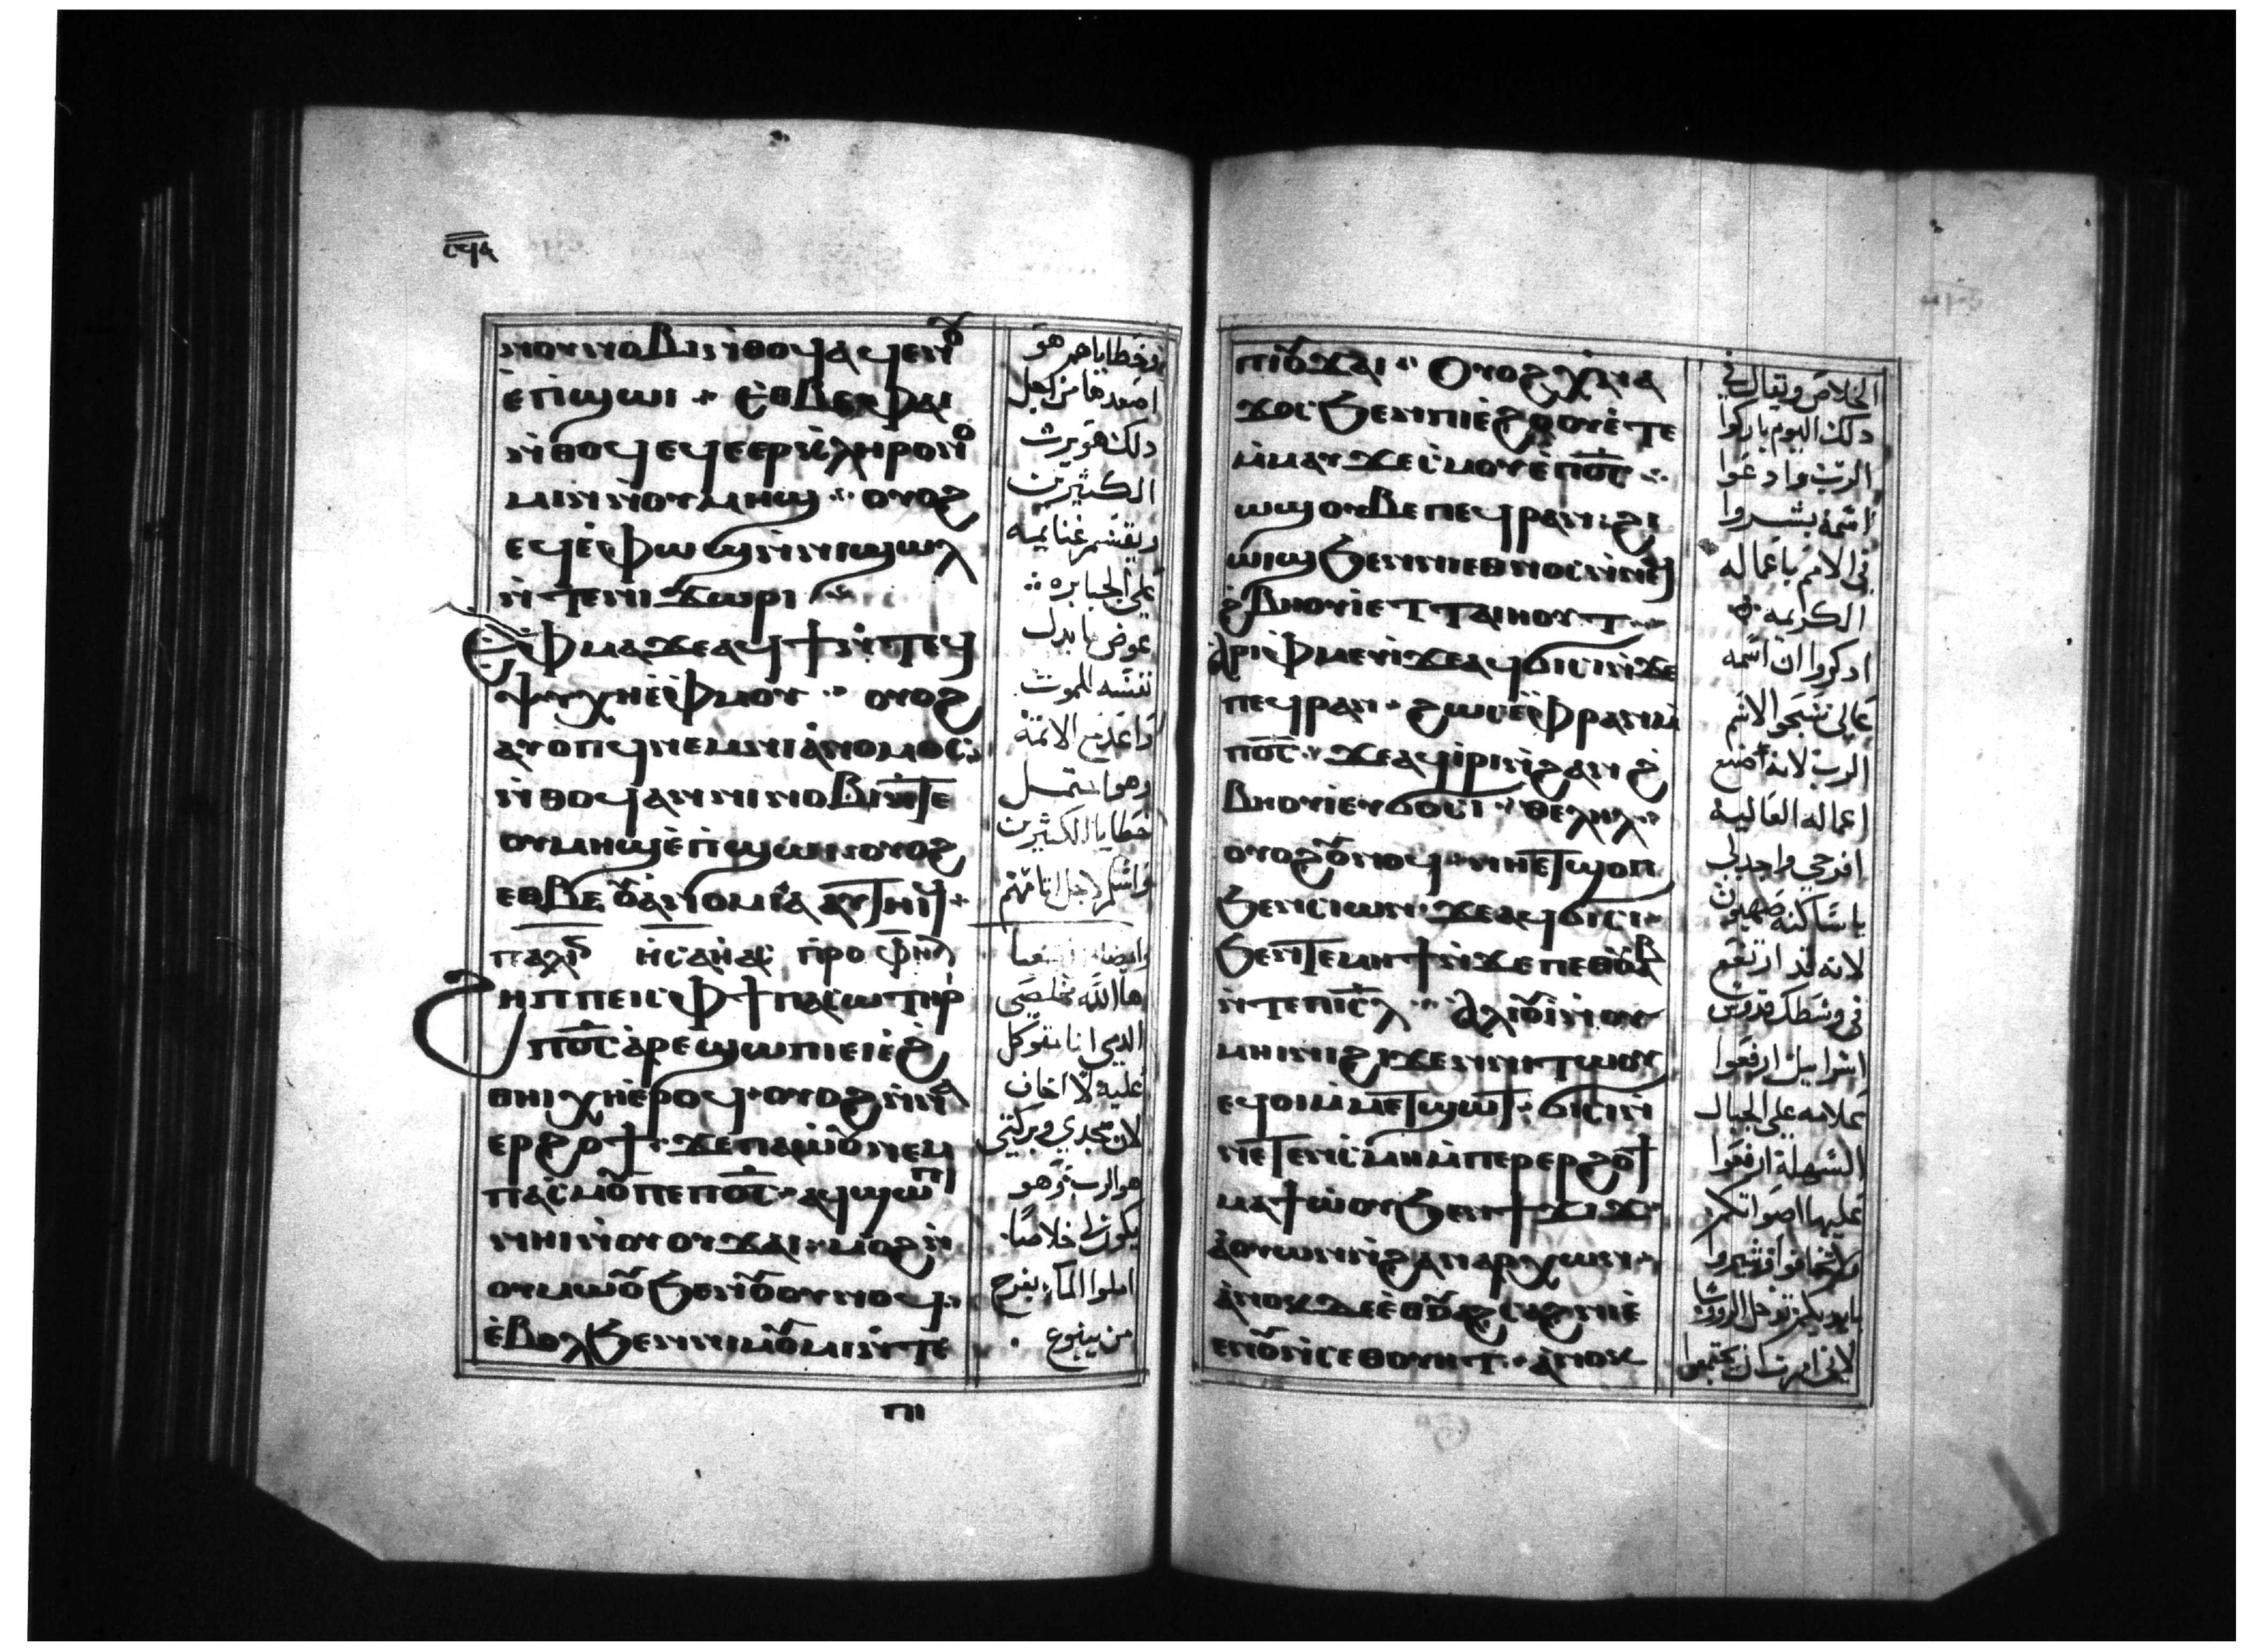 ⲛⲟⲩⲛⲟⲃⲓⲛ̀ⲑⲟϥⲁϥⲉⲛⲟⲩ
ⲉ̀ⲡϣⲱⲓ ⲉⲑⲃⲉⲫⲁⲓ
ⲛ̀ⲑⲟϥⲉϥⲉⲉⲣⲕ̀ⲗⲏⲣⲟⲛⲟ
ⲙⲓⲛ̀ⲛⲟⲩⲙⲏϣ ⲟⲩⲟϩ
ⲉϥⲉ̀ⲫⲱϣⲛ̀ⲛⲓϣⲱⲗ
ⲛ̀ⲧⲉⲛⲓϫⲱⲣⲓ
ⲉ̀ⲫⲙⲁϫⲉⲁϥϯⲛ̀ⲧⲉϥ
ⲯⲩⲭⲏⲉ̀ⲫⲙⲟⲩ ⲟⲩⲟϩ
ⲁⲩⲟⲡϥⲛⲉⲙⲛⲓⲁ̀ⲛⲟⲙⲟⲥ
ⲛ̀ⲑⲟϥⲁⲛⲛⲓⲛⲟⲃⲓⲛ̀ⲧⲉ
ⲟⲩⲙⲏϣⲉ̀ⲡϣⲱⲓ ⲟⲩⲟϩ
ⲉⲑⲃⲉⲟⲩⲁ̀ⲛⲟⲙⲓⲁ ⲁⲩⲧⲏⲓϥ
ϩⲏⲡⲡⲉⲓⲥⲫϯⲡⲁⲥⲱⲧⲏⲣ
ⲡⲟ̅ⲥ̅ⲁⲣⲉϣⲱⲡⲓⲉⲓⲉ̀ϩ
ⲑⲏⲓⲭⲏⲉ̀ⲣⲟϥ ⲟⲩⲟϩⲛ̀ⲛⲁ
ⲉⲣϩⲟϯ ϫⲉⲡⲁⲱ̀ⲟⲩⲛⲉⲙ
ⲡⲁⲥ̀ⲙⲟⲩⲡⲉⲡⲟ̅ⲥ̅ ⲁϥϣⲱⲡⲓ
ⲛⲏⲓⲛ̀ⲟⲩⲟⲩϫⲁⲓ ⲙⲟϩⲛ̀
ⲟⲩⲙⲱⲟⲩϧⲉⲛⲟⲩⲟⲩⲛⲟϥ
ⲉ̀ⲃⲟⲗϧⲉⲛⲛⲓⲙⲟⲩⲙⲓⲛ̀ⲧⲉ
ⲡⲓ
وخطاياهم هو
اصعدها من اجل
ذلك هو يرث
الكثيرين
ويقسم غنايمه
على الجبابره
عوض ما بدل
نفسه للموت
وهو احتمل
خطايا الكثيرين
ها الله مخلصي
الدي انا متوكل
عليه لا اخاف
لان مجدي وبركتي
هو الرب وهو
يكون لي خلاصا
املوا الماء بفرح
من ينبوع
ⲡⲓⲟⲩϫⲁⲓ ⲟⲩⲟϩⲭⲛⲁ
ϫⲟⲥϧⲉⲛⲡⲓⲉ̀ϩⲟⲟⲩⲉ̀ⲧⲉ
ⲙ̀ⲙⲁⲩϫⲉⲥ̀ⲙⲟⲩⲉ̀ⲡⲟ̅ⲥ̅
ⲱϣⲟⲩⲃⲉⲡⲉϥⲣⲁⲛ ϩⲓ
ⲱⲓϣϧⲉⲛⲛⲓⲉⲑⲛⲟⲥⲛ̀ⲛⲉϥ
ϩ̀ⲃⲏⲟⲩⲓⲉⲧⲧⲁⲓⲏⲟⲩⲧ
ⲁⲣⲓⲫⲙⲉⲩⲓϫⲉⲁϥϭⲓⲥⲓⲛ̀ϫⲉ
ⲡⲉϥⲣⲁⲛ ϩⲱⲥⲉ̀ⲫⲣⲁⲛⲙ̀
ⲡⲟ̅ⲥ̅ ϫⲉⲁϥⲓⲣⲓⲛ̀ϩⲁⲛϩ̀
ⲃⲏⲟⲩⲓⲉⲩϭⲟⲥⲓ ⲑⲉⲗⲏⲗ
ⲟⲩⲟϩⲟⲩⲛⲟϥ ⲛⲏⲉⲧϣⲟⲡ
ϧⲉⲛⲥⲓⲱⲛ ϫⲉⲁϥϭⲓⲥⲓ
ϧⲉⲛⲧⲉⲙⲏϯⲛ̀ϫⲉⲡⲉⲑⲟⲩⲁⲃ
ⲛ̀ⲧⲉⲡⲓⲥ̅ⲗ ⲁⲗⲓⲟⲩⲓⲛ̀ⲟⲩ
ⲙⲏⲓⲛⲓϩⲓϫⲉⲛⲛⲓⲧⲱⲟⲩ
ⲉϥⲟⲓⲙ̀ⲙⲉⲧϣⲱⲧ ϭⲓⲥⲓⲛ̀
ⲛⲉⲧⲉⲛⲥ̀ⲙⲏⲙ̀ⲡⲉⲣⲉⲣϩⲟϯ
ⲙⲁϯⲱⲟⲩϧⲉⲛϯϫⲓϫ
ⲁ̀ⲟⲩⲱⲛⲛ̀ϩⲁⲛⲁⲣⲭⲱⲛ
ⲁⲛⲟⲕⲇⲉⲉ̀ⲑⲟⲩⲁϩⲥⲁϩⲛⲓⲉ̀
ⲉⲛⲟⲩⲛ̀ⲥⲉⲑⲟⲩⲏⲧ ⲁⲛⲟⲕ
الخلاص وتقال في
دلك اليوم باركوا
الرب وادعوا
لاسمه بشروا
في الامم باعماله
الكرايمه
ادكروا ان اسمه
عالي سبحوا لاسم
الرب لانه صنع
اعماله العاليه
افرحي وابتهجي
يا ساكنه صهيون
لانه قد ارتفع
في وسطك قدوس
اسراييل ارفعوا
علامه على الجبال
السهله ارفعوا
عليها اصواتكم